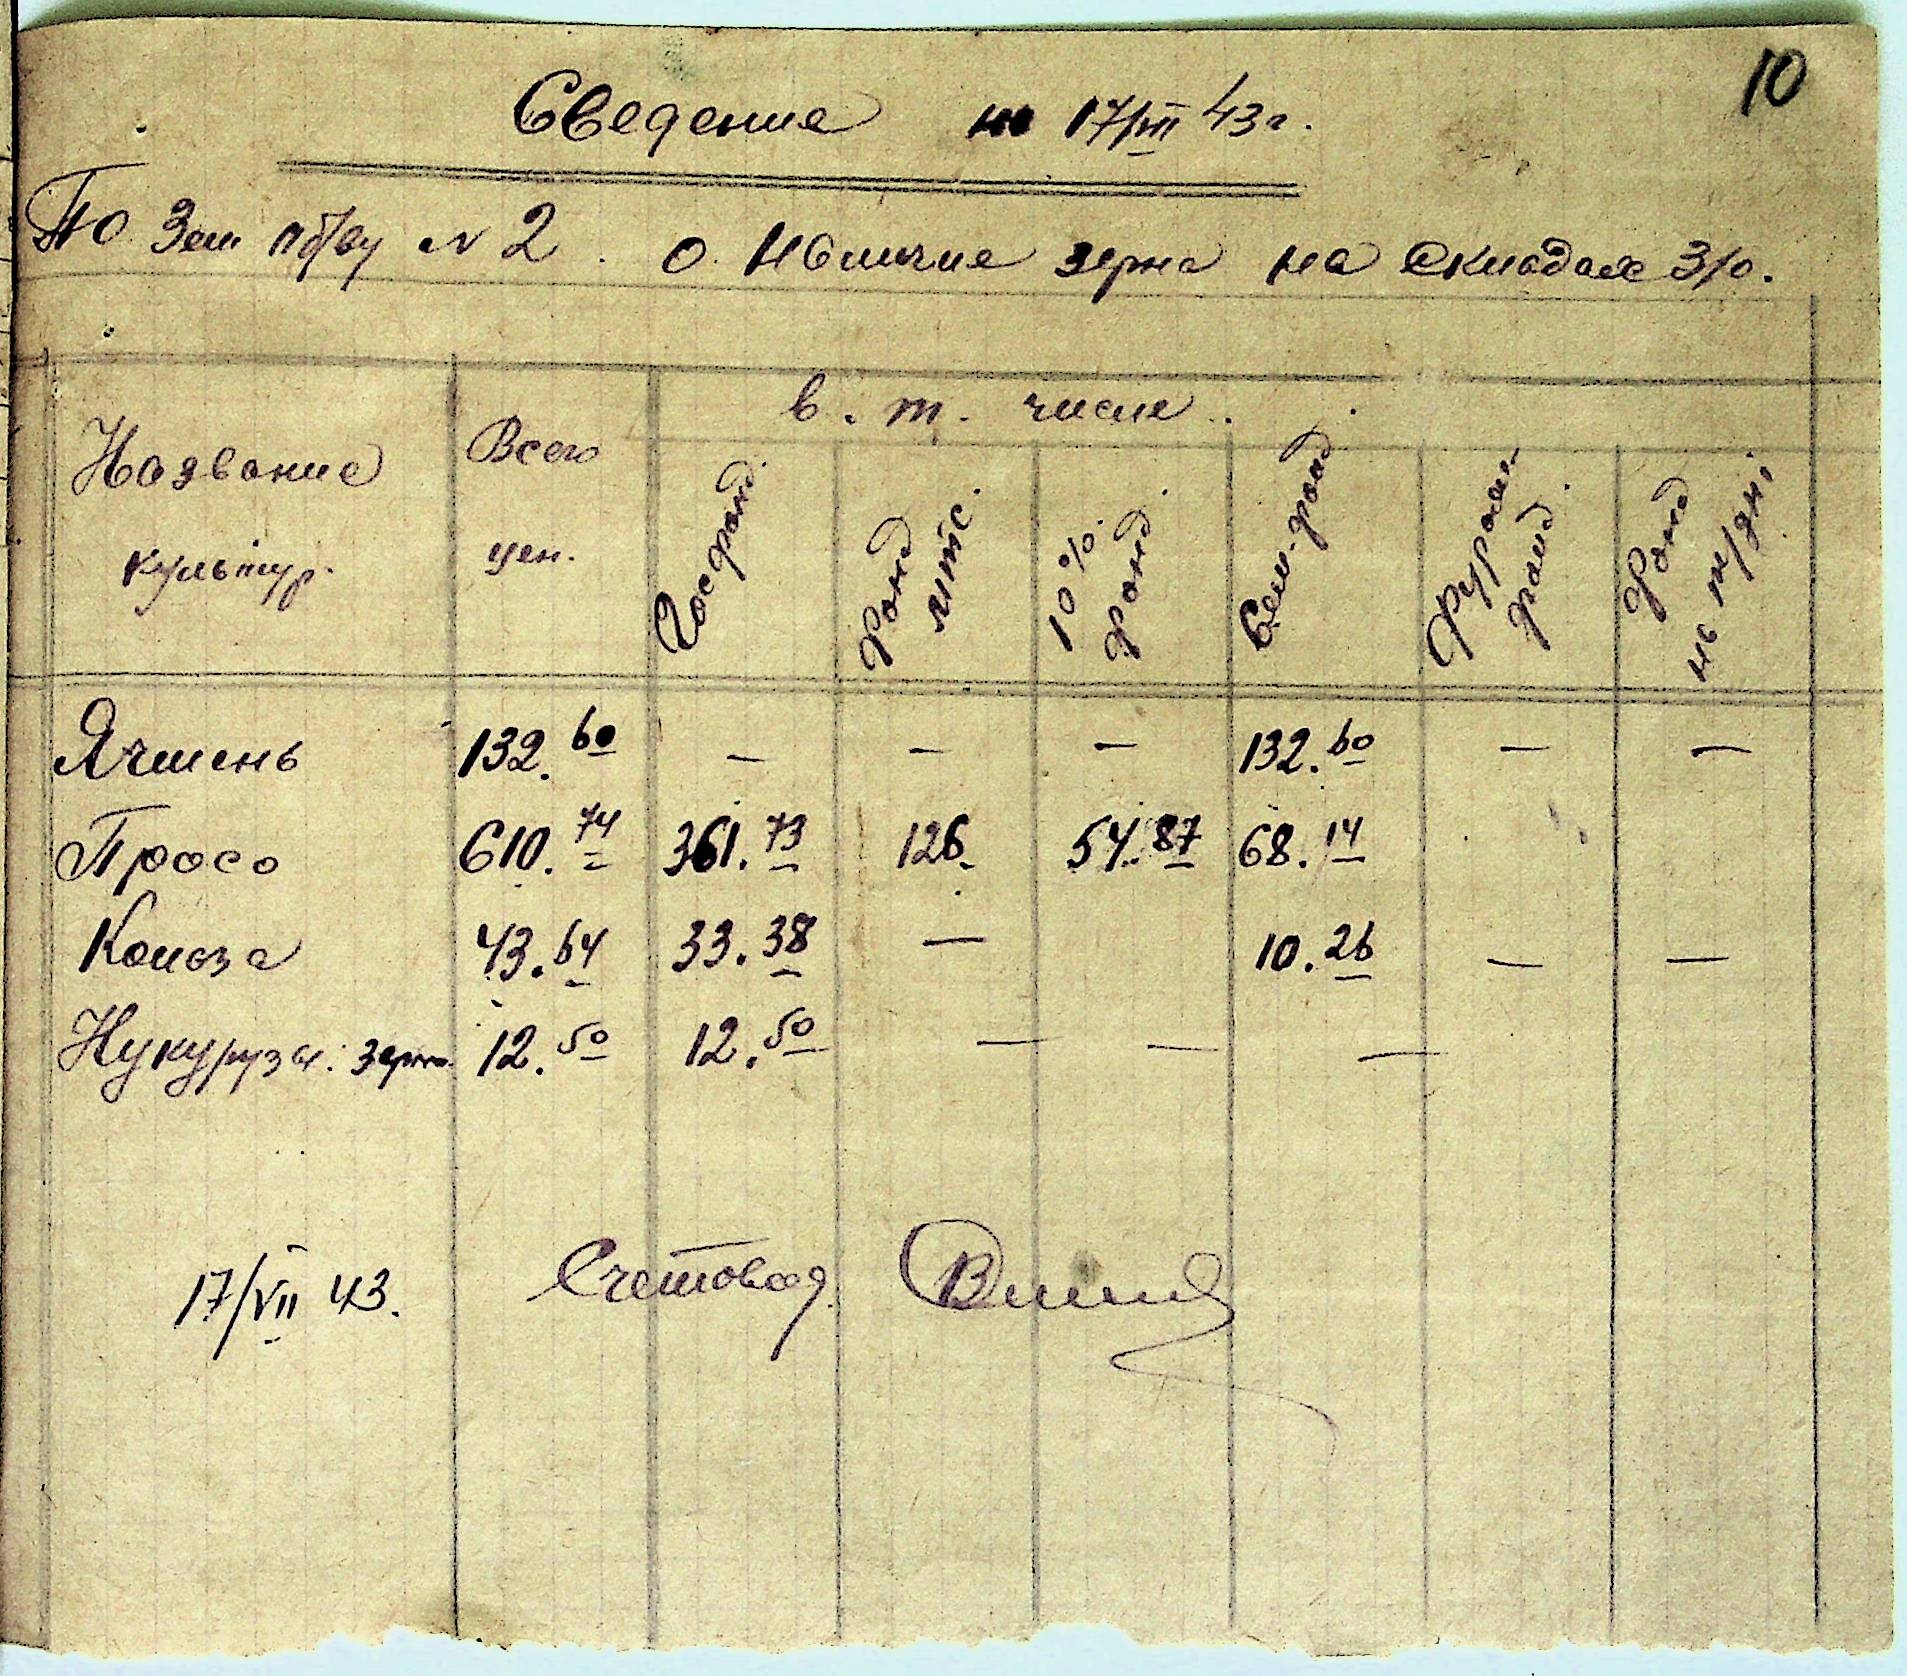 10
Сведение на 17/VII 43 г.
По Зем об/ву N 2. о наличие зерна на складах З/О.
Название культур.
Всего цен.
в. т. числе.
Госфонд.
Фонд МТС.
10% фонд.
Сем. фонд
Фураж. фонд.
Фонд на т/дні
Ячмень 132.60 — — — 132.60 — —
Просо 610.74 361.73 126. 54.87 68.14
Колоза 43.64 33.38 — 10.26 — —
Кукурузы. зерно. 12.50 12.50 — — —
17/VII 43. Счетовод.